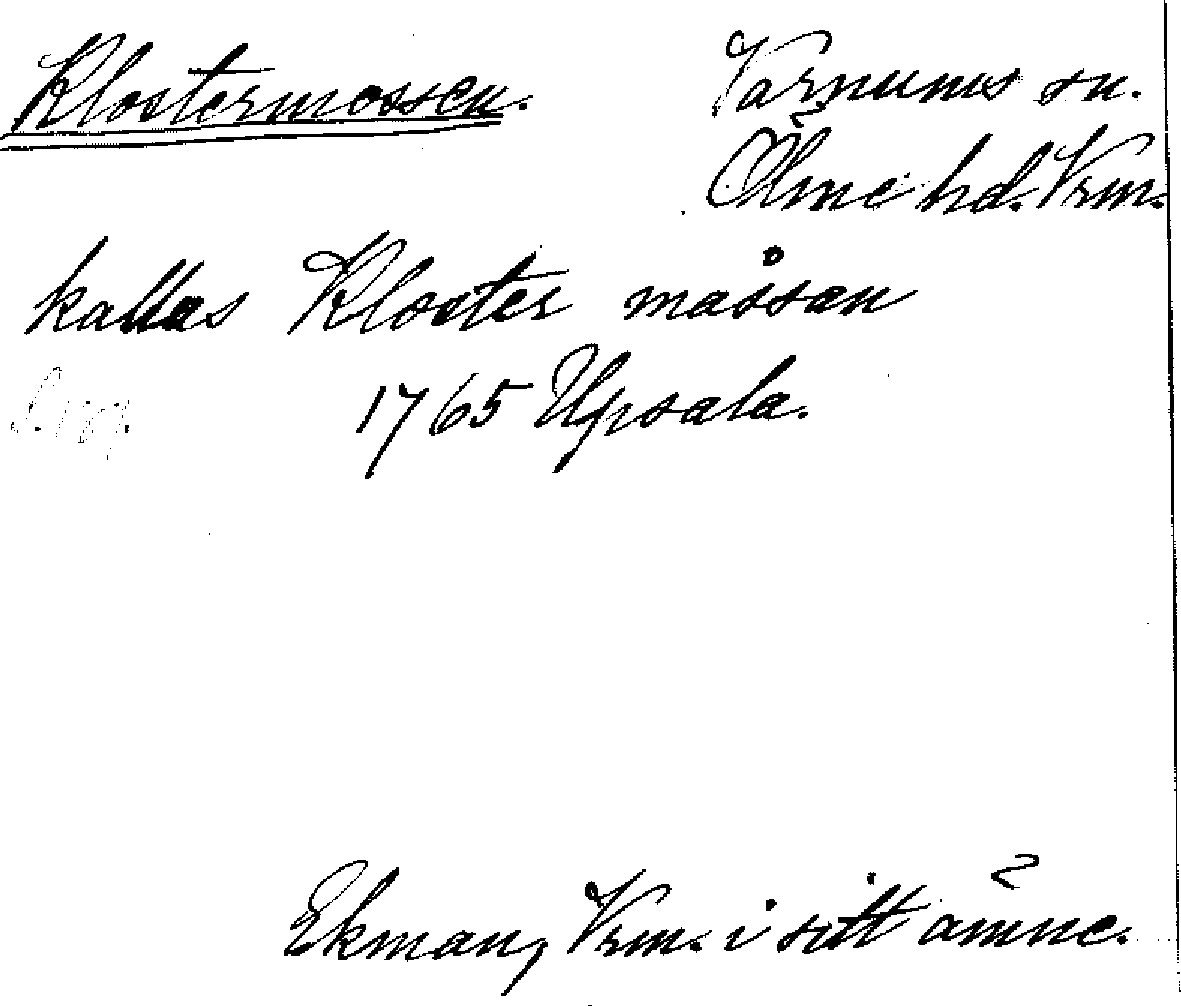 Klostermossen.
Varnums sn.
Ölme hd. Vrm.
kallas Kloster måssan
1765 Upsala.
Ekman, Vrm. i sitt ämne.